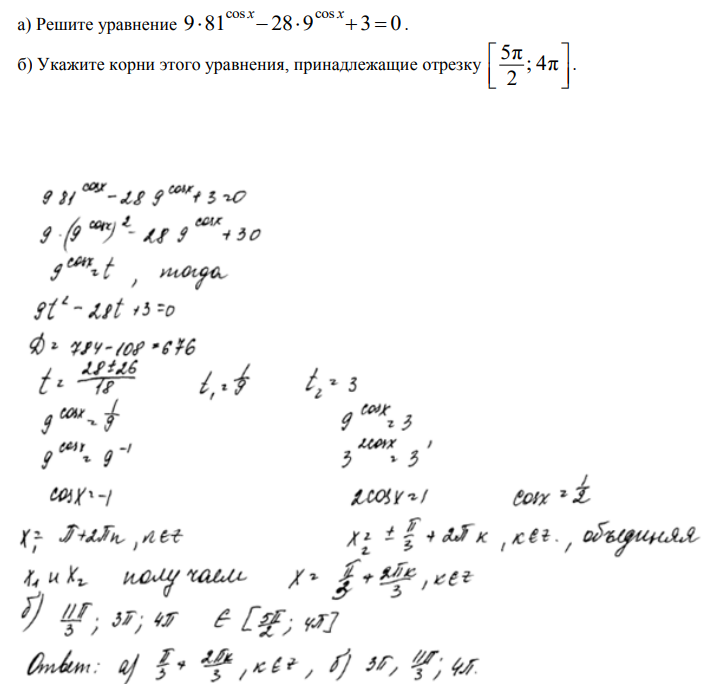 а) Решите уравнение 9·81^cos x − 28·9^cos x + 3 = 0.
б) Укажите корни этого уравнения, принадлежащие отрезку [5π/2; 4π].
9 81^cosx − 28 9^cosx + 3 = 0
9·(9^cosx)^2 − 28 9^cosx + 3 0
9^cosx = t, тогда
9t^2 − 28t + 3 = 0
D = 784 − 108 = 676
t = (28 ± 26)/18 t₁ = 1/9 t₂ = 3
9^cosx = 1/9 9^cosx = 3
9^cosx = 9^−1 3^2cosx = 3^1
cosx = −1 2cosx = 1 cosx = 1/2
x₁ = π + 2πn, n∈Z x₂ = ± π/3 + 2πk, k∈Z., объединяя
x₁ и x₂ получаем x = π/3 + 2πk/3, k∈Z
б) 11π/3; 3π; 4π ∈ [5π/2; 4π]
Ответ: а) π/3 + 2πk/3, k∈Z, б) 3π, 11π/3; 4π.